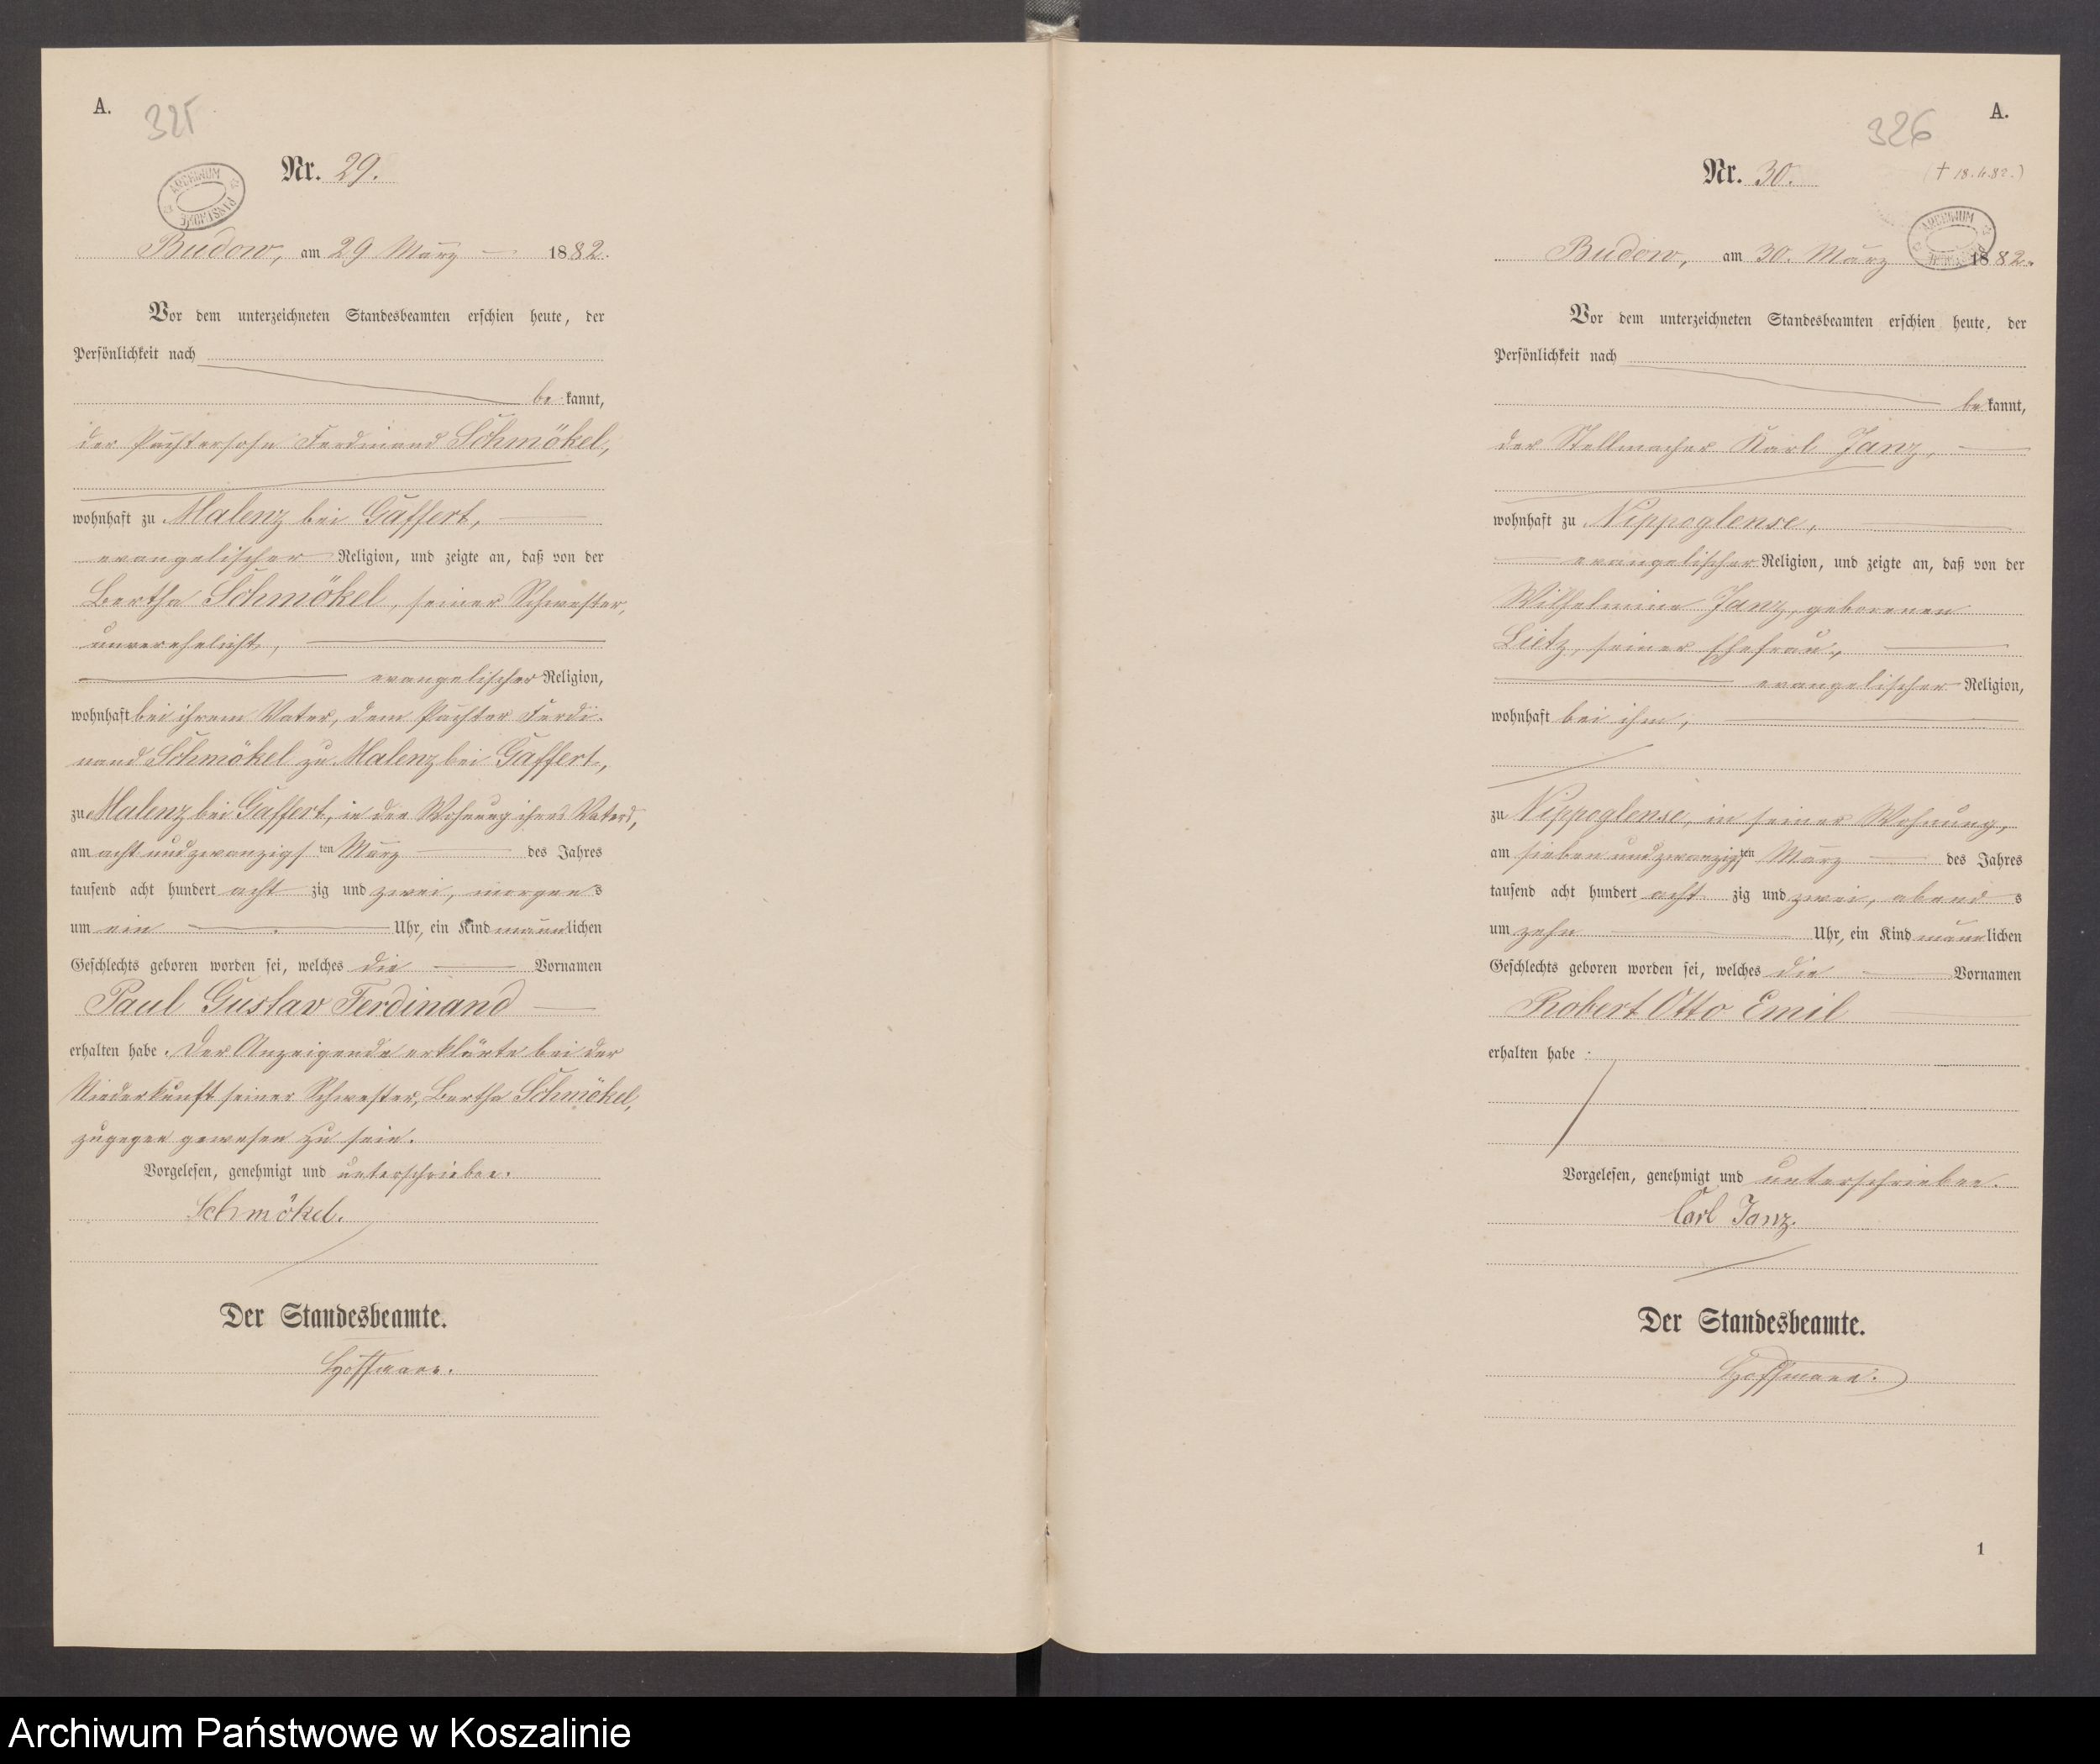 A.
325
Nr. 29.
ARCHIWUM PAŃSTWOWE
Budow, am 29 März 1882.
Vor dem unterzeichneten Standesbeamten erschien heute, der
Persönlichkeit nach
be kannt,
der Pächtersohn Ferdinand Schmökel,
wohnhaft zu Malenz bei Gaffert,
evangelischer Religion, und zeigte an, daß von der
Bertha Schmökel, seiner Schwester,
unverehelicht,
evangelischer Religion,
wohnhaft bei ihrem Vater, dem Pächter Ferdi-
nand Schmökel zu Malenz bei Gaffert,
zu Malenz bei Gaffert, in der Wohnung ihres Vaters,
am acht und zwanzigsten März des Jahres
tausend acht hundert acht zig und zwei, morgens
um ein Uhr, ein Kind männlichen
Geschlechts geboren worden sei, welches die Vornamen
Paul Gustav Ferdinand
erhalten habe. Der Anzeigende erklärte bei der
Niederkunft seiner Schwester, Bertha Schmökel,
zugegen gewesen zu sein.
Vorgelesen, genehmigt und unterschrieben.
Schmökel.
Der Standesbeamte.
Hoffmann.
A.
326
Nr. 30.
(† 18.4.82.)
ARCHIWUM PAŃSTWOWE
Budow, am 30. März 1882.
Vor dem unterzeichneten Standesbeamten erschien heute, der
Persönlichkeit nach
be kannt,
der Stellmacher Karl Janz,
wohnhaft zu Nippoglense,
evangelischer Religion, und zeigte an, daß von der
Wilhelmine Janz, geborenen
Lietz, seiner Ehefrau,
evangelischer Religion,
wohnhaft bei ihm,
zu Nippoglense, in seiner Wohnung,
am sieben und zwanzigsten März des Jahres
tausend acht hundert acht zig und zwei, abends
um zehn Uhr, ein Kind männlichen
Geschlechts geboren worden sei, welches die Vornamen
Robert Otto Emil
erhalten habe.
Vorgelesen, genehmigt und unterschrieben.
Carl Janz.
Der Standesbeamte.
Hoffmann.
1
Archiwum Państwowe w Koszalinie